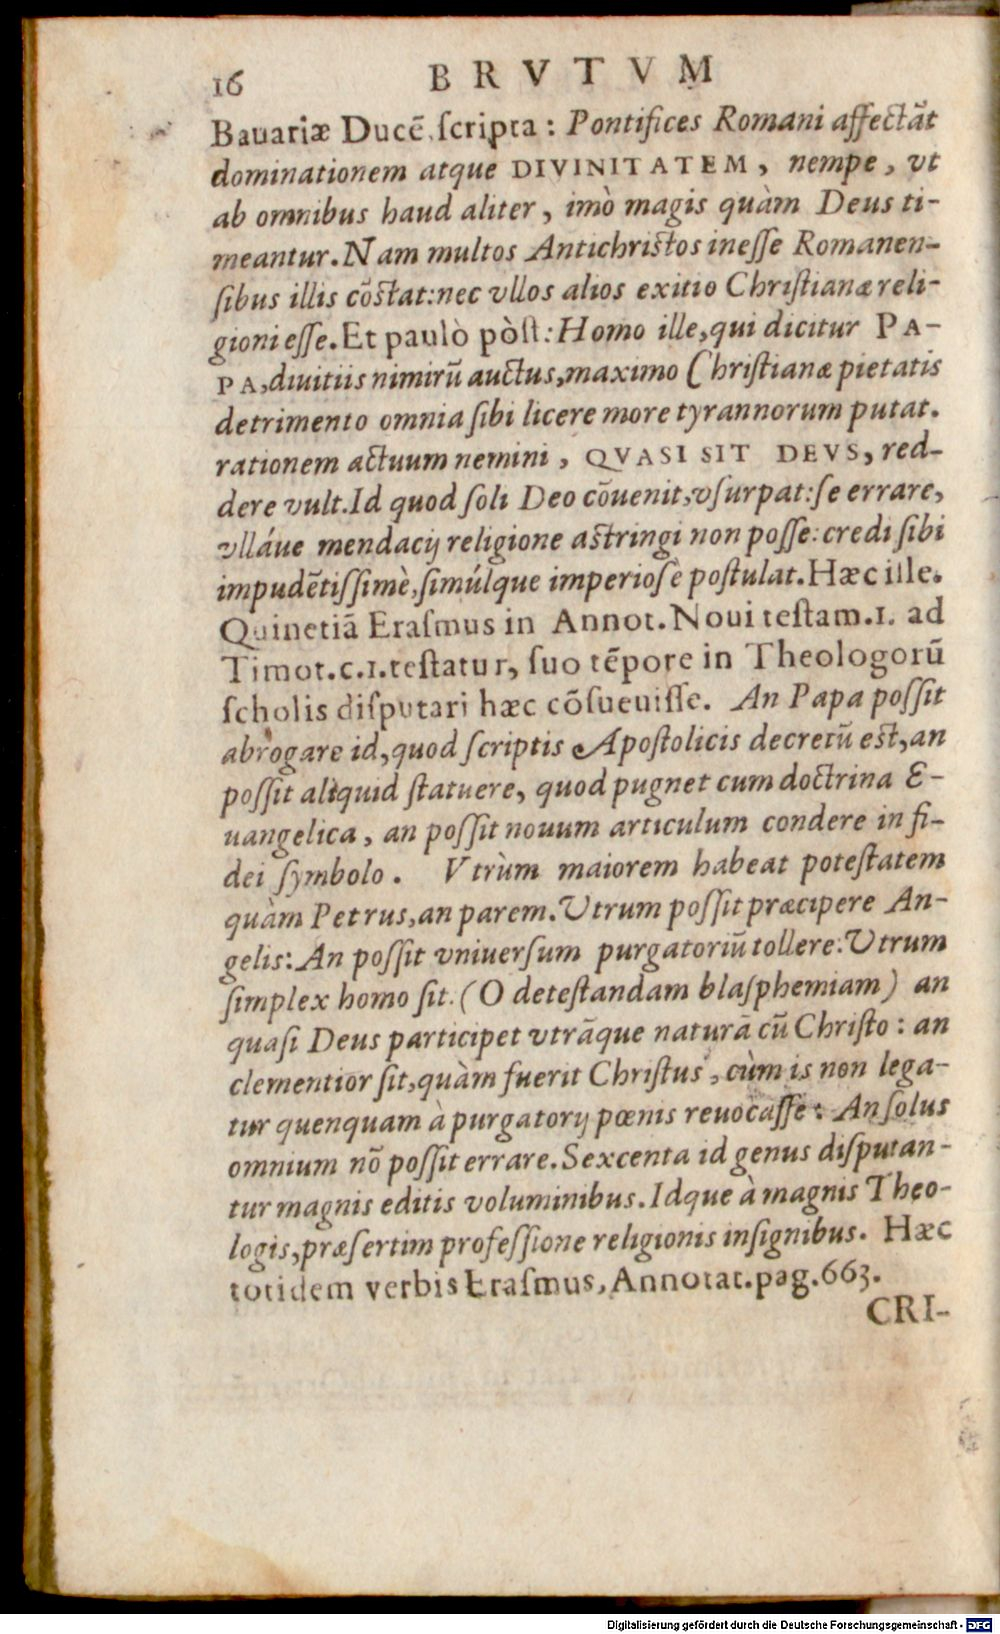 16 BRVTVM
Bauariæ Ducẽ, ſcripta : Pontifices Romani affectãt
dominationem atque DIVINITATEM, nempe, vt
ab omnibus haud aliter, imò magis quàm Deus ti-
meantur. Nam multos Antichriſtos ineſſe Romanen-
ſibus illis cõſtat: nec vllos alios exitio Chriſtianæ reli-
gioni eſſe. Et paulò pòſt: Homo ille, qui dicitur PA-
PA, diuitiis nimirũ auctus, maximo Chriſtianæ pietatis
detrimento omnia ſibi licere more tyrannorum putat.
rationem actuum nemini, QVASI SIT DEVS, red-
dere vult. Id quod ſoli Deo cõuenit, vſurpat: ſe errare,
vlláue mendacij religione aſtringi non poſſe: credi ſibi
impudẽtiſſimè, ſimúlque imperioſè poſtulat. Hæc ille.
Quinetiã Eraſmus in Annot. Noui teſtam. 1. ad
Timot. c. 1. teſtatur, ſuo tẽpore in Theologorũ
ſcholis diſputari hæc cõſueuiſſe. An Papa poſſit
abrogare id, quod ſcriptis Apoſtolicis decretũ eſt, an
poſſit aliquid ſtatuere, quod pugnet cum doctrina E-
uangelica, an poſſit nouum articulum condere in fi-
dei ſymbolo. Vtrùm maiorem habeat poteſtatem
quàm Petrus, an parem. Vtrum poſſit præcipere An-
gelis: An poſſit vniuerſum purgatoriũ tollere: Vtrum
ſimplex homo ſit. (O deteſtandam blaſphemiam) an
quaſi Deus participet vtrãque naturã cũ Chriſto : an
clementior ſit, quàm fuerit Chriſtus, cùm is non lega-
tur quenquam à purgatorij pœnis reuocaſſe: An ſolus
omnium nõ poſſit errare. Sexcenta id genus diſputan-
tur magnis editis voluminibus. Idque à magnis Theo-
logis, præſertim profeſſione religionis inſignibus. Hæc
totidem verbis Eraſmus, Annotat. pag. 663.
CRI-
Digitalisierung gefördert durch die Deutsche Forschungsgemeinschaft - DFG